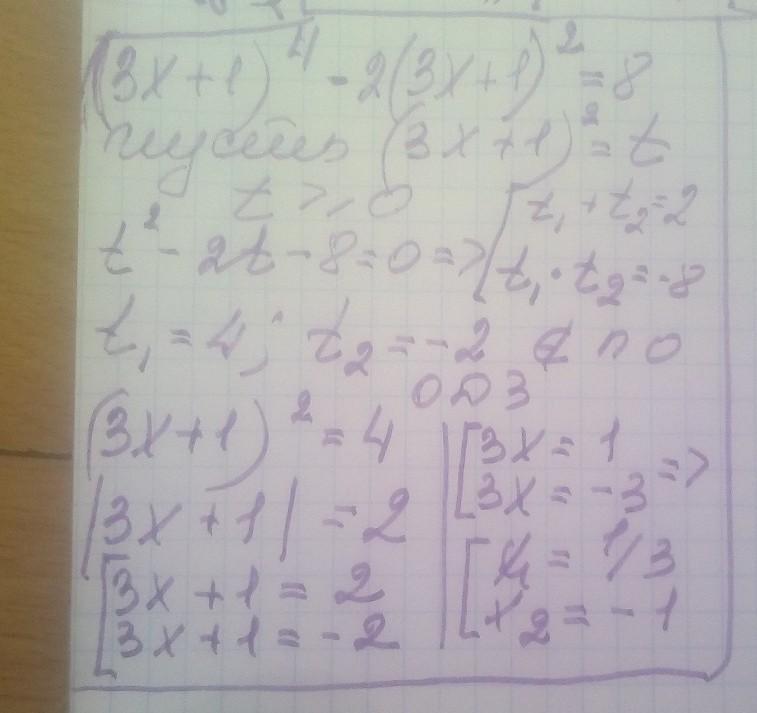 (3x+1)⁴ - 2(3x+1)² = 8
пусть (3x+1)² = t
t ≥ 0
t² - 2t - 8 = 0 => [t₁ + t₂ = 2
[t₁ · t₂ = -8
t₁ = 4; t₂ = -2 ∉ по
ОДЗ
(3x+1)² = 4
|3x+1| = 2
[3x+1 = 2
[3x+1 = -2
[3x = 1
[3x = -3 =>
[x₁ = 1/3
[x₂ = -1